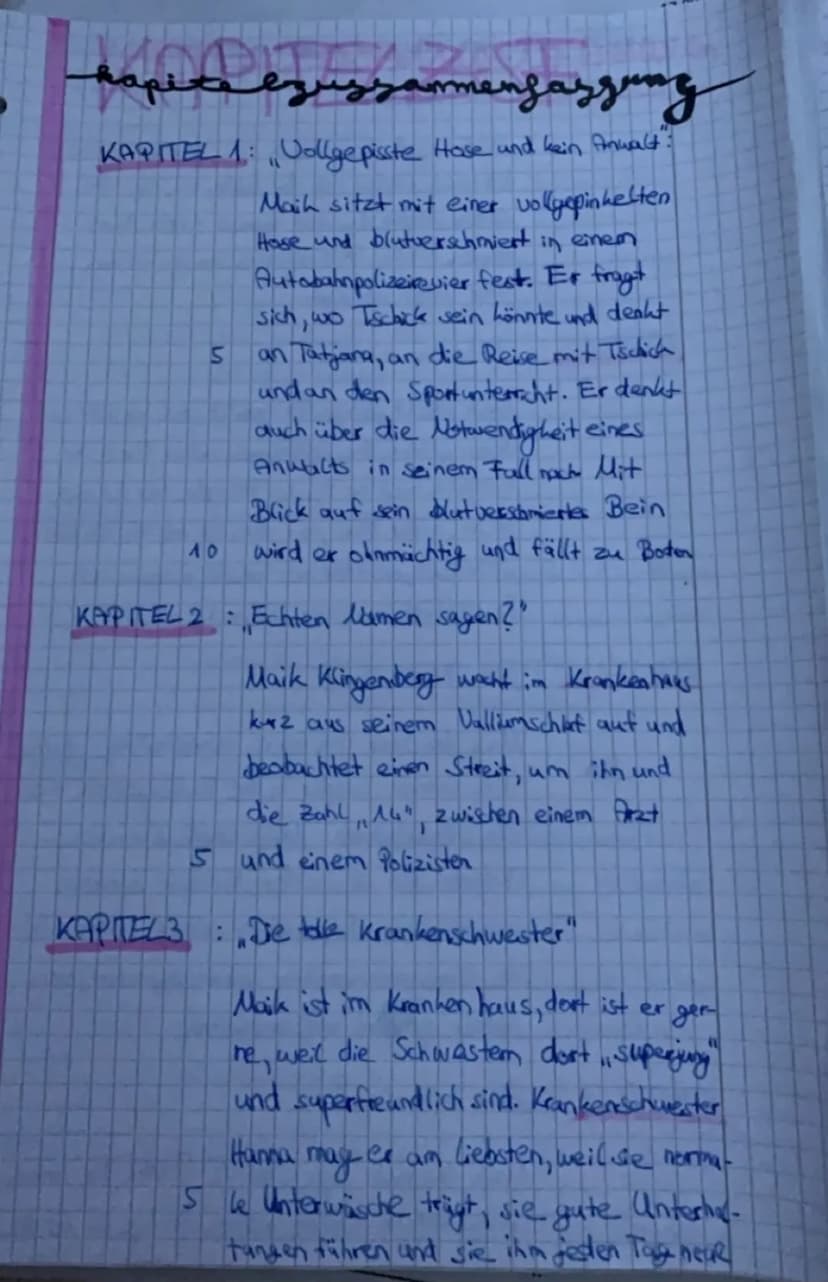 kapitelzusammenfassung
KAPITEL 1: „Vollgepisste Hose und kein Anwalt":
Maik sitzt mit einer vollgepinkelten
Hose und blutverschmiert in einem
Autobahnpolizeirevier fest. Er fragt
sich, wo Tschick sein könnte und denkt
5 an Tatjana, an die Reise mit Tschick
und an den Sportunterricht. Er denkt
auch über die Notwendigkeit eines
Anwalts in seinem Fall nach Mit
Blick auf sein blutverschmiertes Bein
10 wird er ohnmächtig und fällt zu Boden
KAPITEL 2 : „Echten Namen sagen?"
Maik Klingenberg wacht im Krankenhaus
kurz aus seinem Valiumschlaf auf und
beobachtet einen Streit, um ihn und
die Zahl „14", zwischen einem Arzt
5 und einem Polizisten
KAPITEL 3 : „De tolle Krankenschwester"
Maik ist im Krankenhaus, dort ist er ger-
ne, weil die Schwestern dort „superjung"
und superfreundlich sind. Krankenschwester
Hanna mag er am liebsten, weil sie norma-
5 le Unterwäsche trägt, sie gute Unterhal-
tungen führen und sie ihm jeden Tag neue